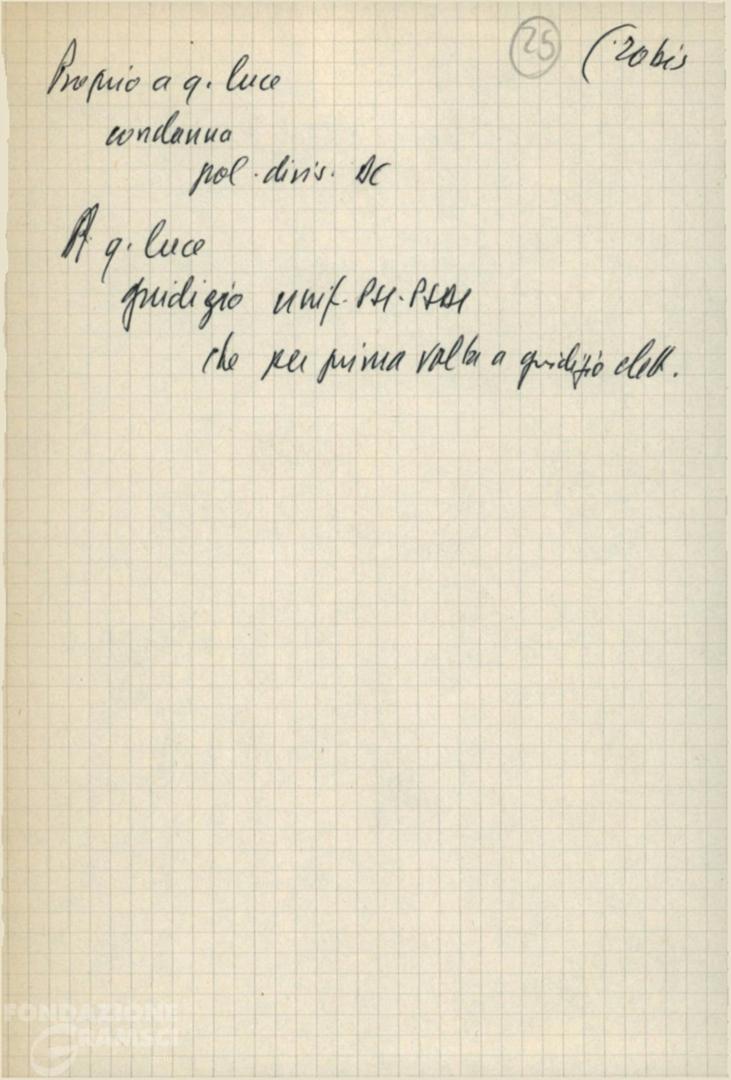 25 (20 bis
Proprio a q. luce
condanna
pol. divis. DC
A q. luce
giudizio unif. PSI-PSDI
che per prima volta a giudizio elett.
FONDAZIONE
GRAMSCI